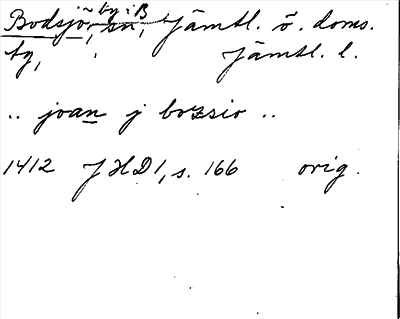 ~ by i B
Bodsjö, sn, Jämtl. ö. doms.
tg, Jämtl. l.
.. joan j bozsio ..
1412 JHD 1, s. 166 orig.